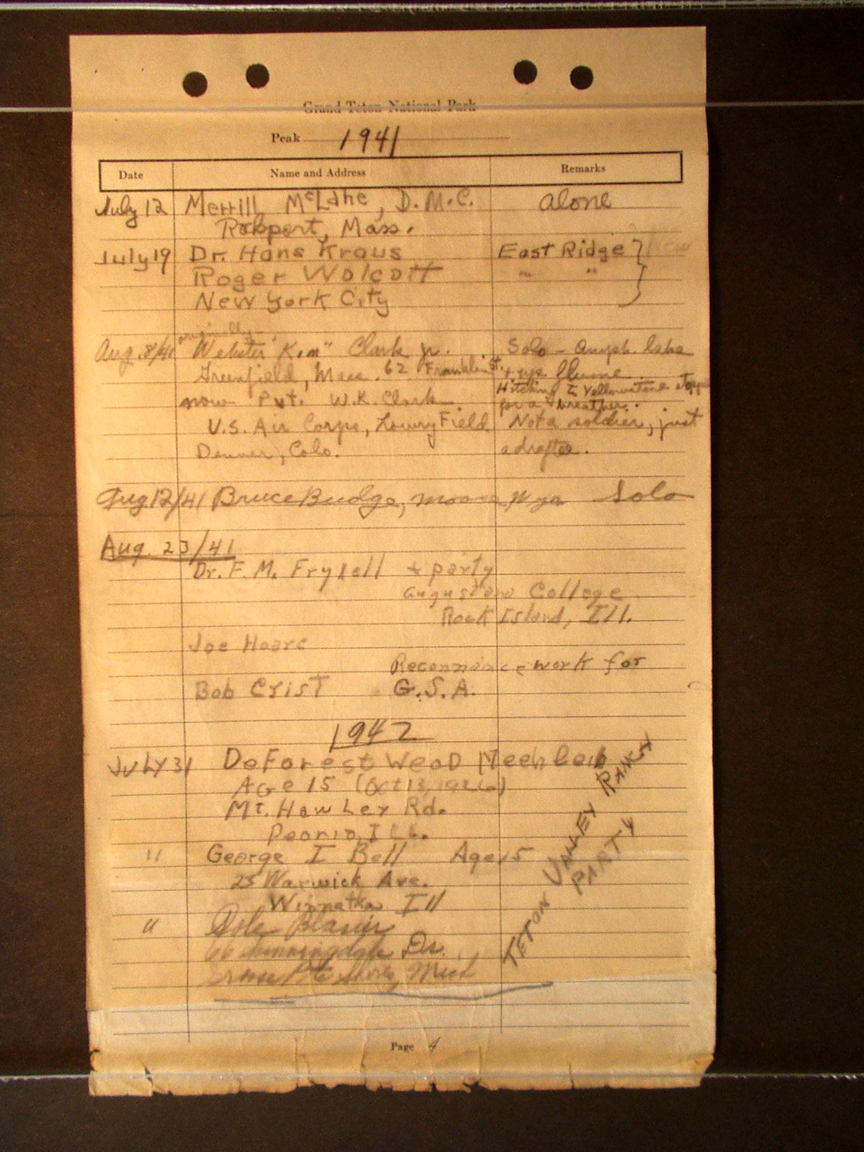 Grand Teton National Park
Peak 1941
Date Name and Address Remarks
July 12 Merrill McLane, D.M.C. alone
Rokport, Mass.
July 19 Dr. Hans Kraus East Ridge } New
Roger Wolcott " "
New York City
originally
Aug. 8/41 Webster "Ken" Clark jr. Solo - Amph. Lake
Greenfield, Mass. 62 Franklin St. + rye
now Pvt. W.K. Clark Hitching to Yellowstone stopped
for a breather.
U.S. Air Corps, Lowry Field Not a soldier, just
Denver, Colo. a draftee.
Aug 12/41 Bruce Budge, Moose Wyo Solo
Aug. 23/41
Dr. F. M. Fryxell + party
Augustana College
Rock Island, Ill.
Joe Hoare
Reconnance work for
Bob Crist G.S.A.
1942
JULY 31 DeForest Wead
Age 15 (Oct 13, 1926)
Mt. Hawley Rd.
Peoria, Ill.
" George I Bell Age 15
25 Warwick Ave.
Winnetka Ill
"
Dr.
Mich
TETON VALLEY RANCH
PARTY
Page 4